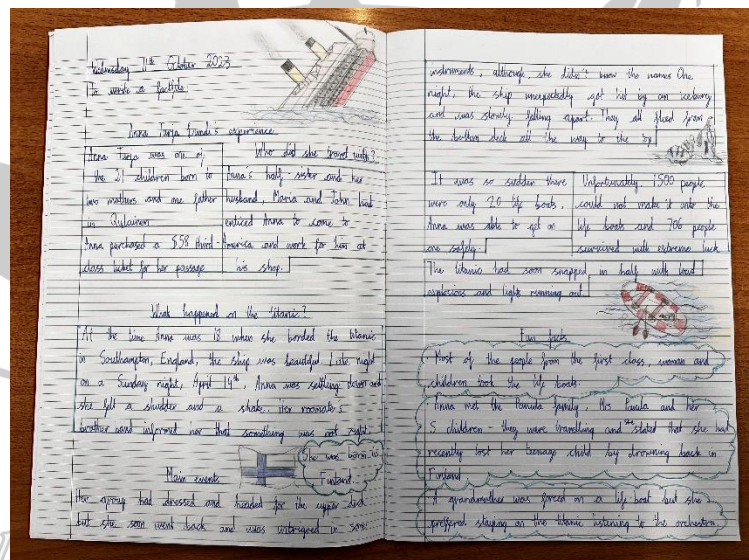 Wednesday 11th October 2023
To write a factfile
Anna Turja Lundi's experience
Anna Turja was one of
the 21 children born to
two mothers and one father
in Oulainen
Anna purchased a $58 third-
class ticket for her passage
Who did she travel with?
Anna's half sister and her
husband, Maria and John had
enticed Anna to come to
America and work for him at
his shop.
What happened on the titanic?
At the time Anna was 18 when she borded the titanic
in Southampton, England, the ship was beautiful. Late night
on a Sunday night, April 14th, Anna was settling down and
she felt a shudder and a shake. Her roomate's
brother and informed her that something was not right
She was born in
Finland.
Main events
Her group had dressed and headed for the upper deck
but she soon went back and was intrigued in some
instruments, although, she didn't know the names One
night, the ship unexpectedly got hit by an iceburg
and was slowly falling apart. They all fled from
the bottom deck all the way to the top
It was so sudden there
were only 20 life boats,
Anna was able to get on
one safely.
Unfortunately, 1500 people
could not make it onto the
life boats and 706 people
survived with extreme luck
The titanic had soon snapped in half with loud
explosions and lights running out.
Fun facts
Most of the people from the first class, woman and
children took the life boats.
Anna met the Panula family, Mrs Panula and her
5 children they were travelling and stated that she had
recently lost her teenage child by drowning back in
Finland
A grandmother was forced on a life boat but she
preffered staying on the titanic listening to the orchestra